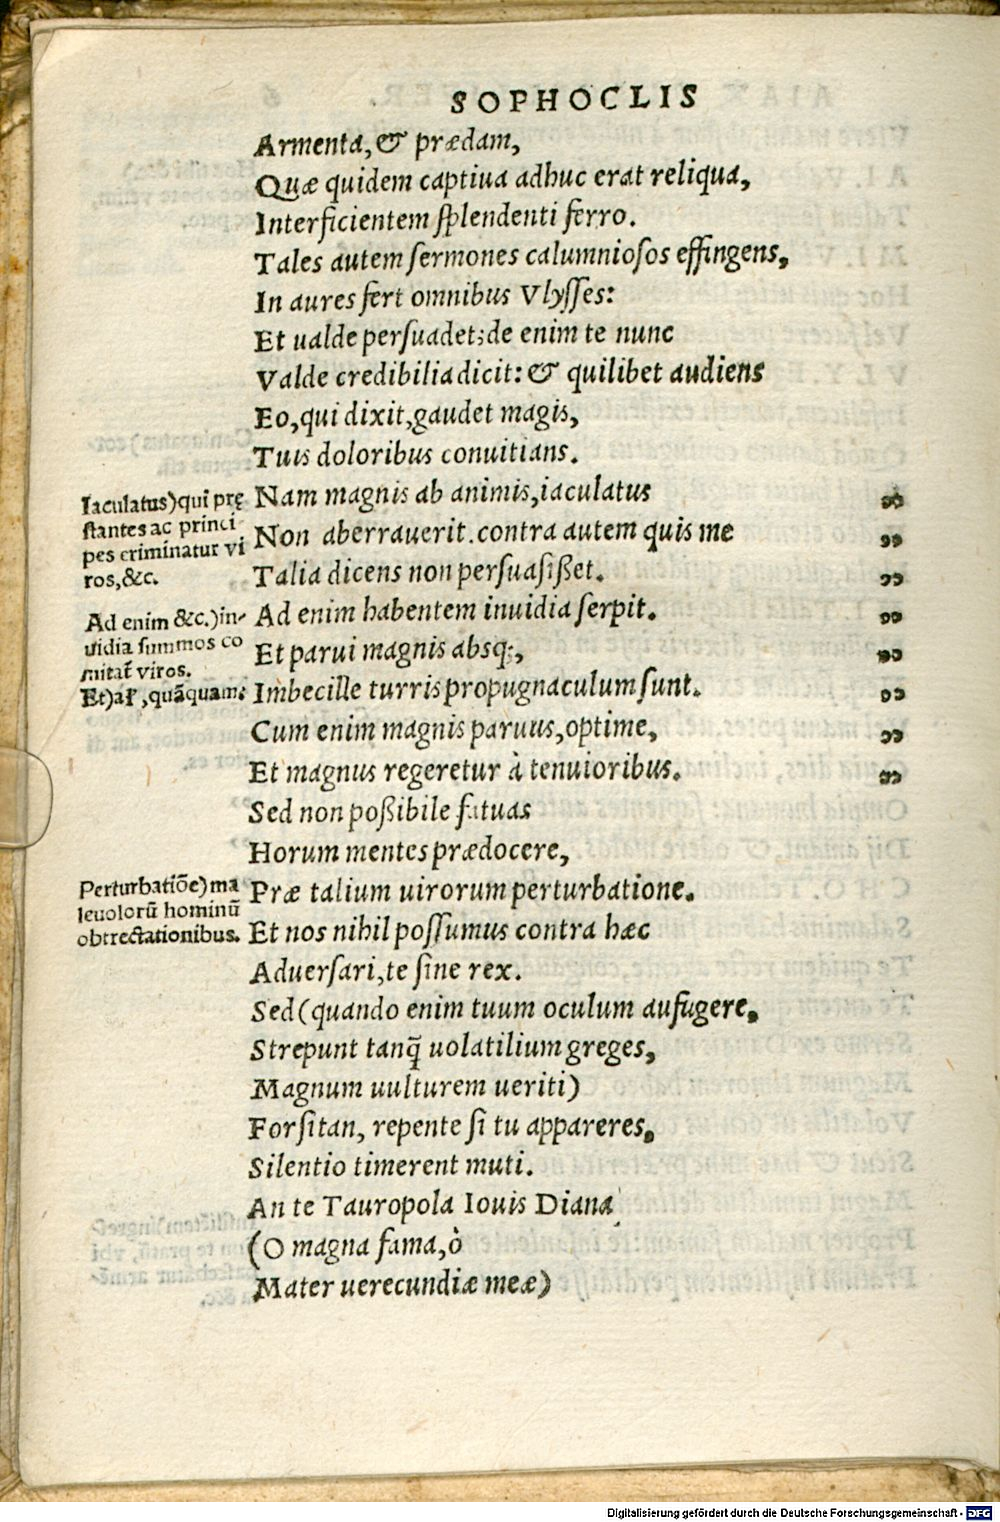 SOPHOCLIS
Armenta, & prædam,
Quæ quidem captiua adhuc erat reliqua,
Interficientem splendenti ferro.
Tales autem sermones calumniosos effingens,
In aures fert omnibus Vlysses:
Et ualde persuadet; de enim te nunc
Valde credibilia dicit: & quilibet audiens
Eo, qui dixit, gaudet magis,
Tuis doloribus conuitians.
Iaculatus) qui prę
stantes ac princi-
pes criminatur vi
ros, &c.
Nam magnis ab animis, iaculatus ”
Non aberrauerit. contra autem quis me ”
Talia dicens non persuasißet. ”
Ad enim &c.) in-
uidia summos co
mitat᷑ viros.
Et) at᷑, quãquam:
Ad enim habentem inuidia serpit. ”
Et parui magnis absq;, ”
Imbecille turris propugnaculum sunt. ”
Cum enim magnis paruus, optime, ”
Et magnus regeretur à tenuioribus. ”
Sed non poßibile fatuas
Horum mentes prædocere,
Perturbatiõe) ma
leuolorũ hominũ
obtrectationibus.
Præ talium uirorum perturbatione.
Et nos nihil possumus contra hæc
Aduersari, te sine rex.
Sed (quando enim tuum oculum aufugere,
Strepunt tanq̃ uolatilium greges,
Magnum uulturem ueriti)
Forsitan, repente si tu appareres,
Silentio timerent muti.
An te Tauropola Iouis Diana
(O magna fama, ò
Mater uerecundiæ meæ)
Digitalisierung gefördert durch die Deutsche Forschungsgemeinschaft - DFG